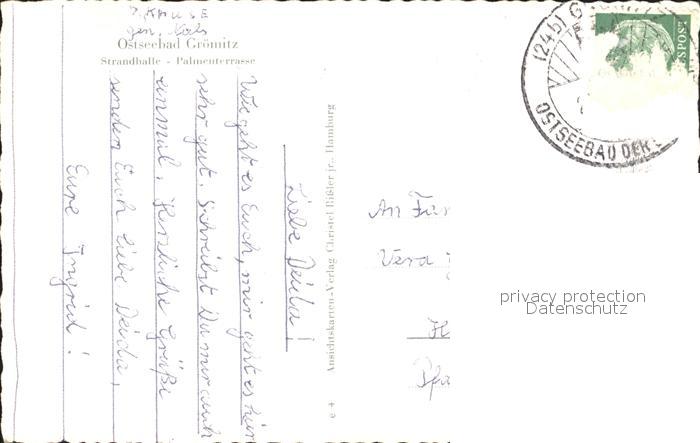 Ostseebad Grömitz
Strandhalle - Palmenterrasse
Liebe Deida!
Wie geht es Euch, mir geht es hier
sehr gut. Schreibst Du mir auch
einmal. Herzliche Grüße
senden Euch liebe Deida,
Eure Ingrid!
Ansichtskarten-Verlag Christel Bißler jr., Hamburg
An Fam
Vera
(24b) G
OSTSEEBAD DER
SPOST
privacy protection
Datenschutz